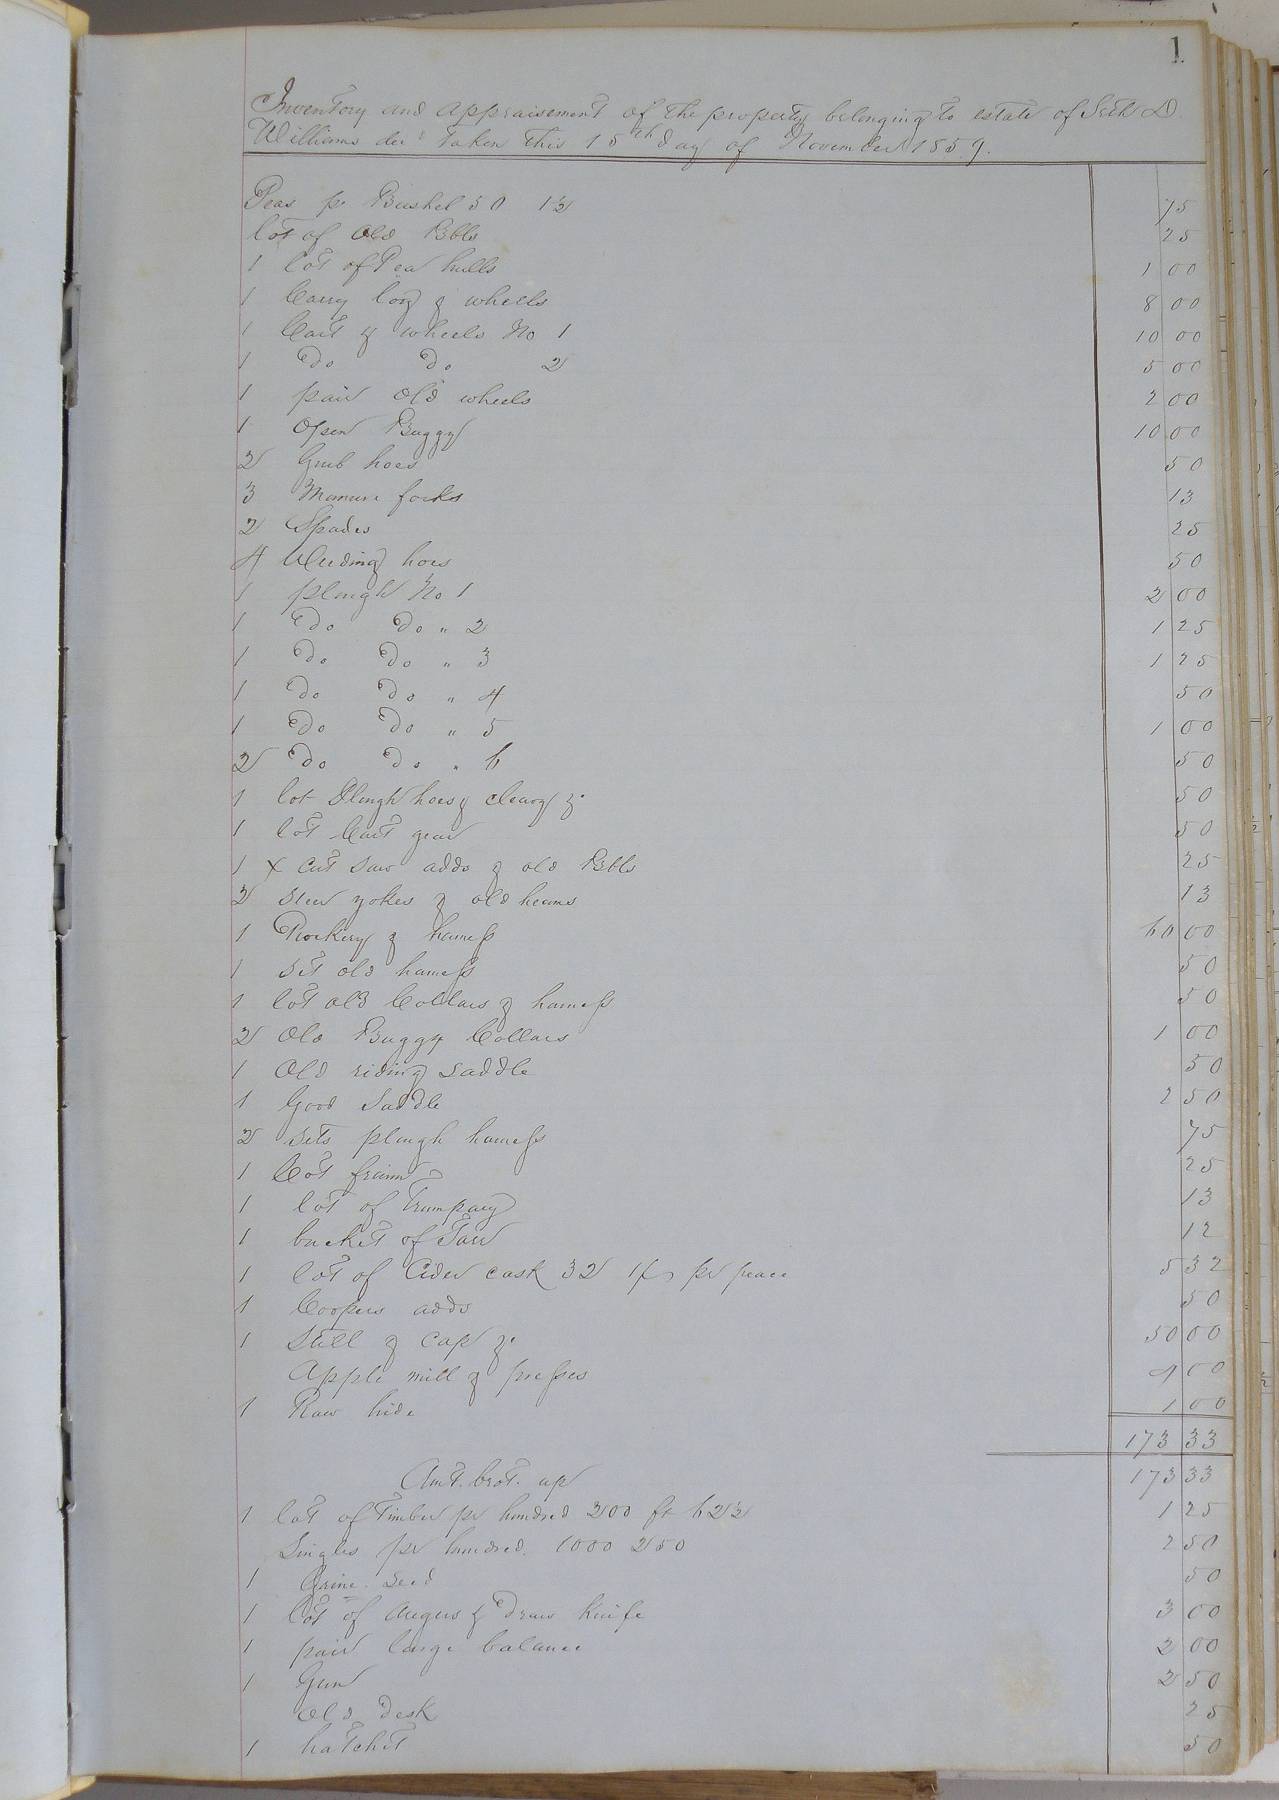 1
Inventory and appraisement of the property belonging to estate of Seth D
Williams dec'd taken this 15th day of November 1859.
Peas pr Bushel 50 1½ 75
lot of Old Bbls 25
1 lot of Pea hulls 1 00
1 Carry log & wheels 8 00
1 Cart & wheels No 1 10 00
1 Do Do 2 5 00
1 pair Old wheels 2 00
1 Open Buggy 10 00
2 Grub hoes 50
3 Manure forks 13
2 Spades 25
4 Weeding hoes 50
1 plough No 1 2 00
1 Do Do " 2 1 25
1 Do Do " 3 1 25
1 Do Do " 4 50
1 Do Do " 5 1 00
2 Do Do " 6 50
1 lot Plough hoes & 50
1 lot Cart gear 50
1 X cut saw adds & old Bbls 25
2 Steer yokes & old heams 13
1 Rockery & harness 60 00
1 Set old harness 50
1 lot old Collars & harness 50
2 Old Buggy Collars 1 00
1 Old riding saddle 50
1 Good Saddle 2 50
2 Sets plough harness 75
1 Cot fraim 25
1 lot of Trumpary 13
1 bucket of Tarr 12
1 lot of Cider cask 32 pr peace 5 32
1 Coopers adds 50
1 Still & cap &. 50 00
Apple mill & presses 4 00
1 Raw hide 1 00
173 33
Amt. brot. up 173 33
1 lot of Timber pr hundred 200 ft 62½ 1 25
Singles pr hundred. 1000 250 2 50
1 Grine Seed 50
1 lot of Augurs & Draw Knife 3 00
1 pair large balance 2 00
1 Gun 2 50
Old Desk 25
1 hatchet 50